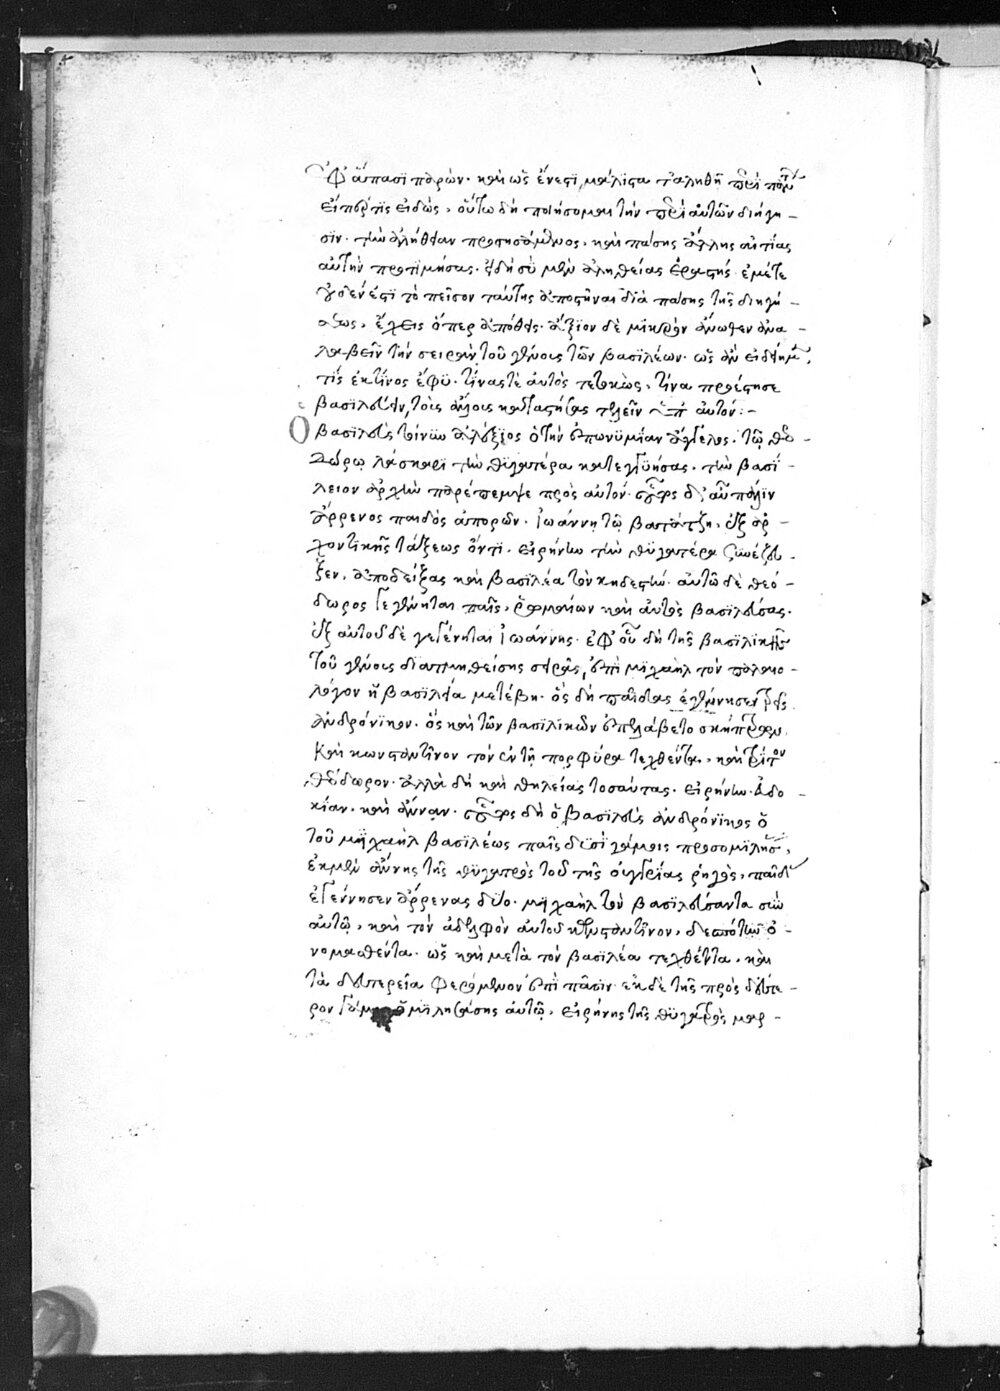 ἐφ' ἅπασι παρὼν. καὶ ὡς ἔνεστι μάλιστα τἀληθῆ περὶ πάντων
εἴπερ τις εἰδὼς, οὕτω δὴ ποιήσομαι τὴν περὶ αὐτῶν διήγη-
σιν. τὴν ἀλήθειαν προτησάμενος, καὶ πάσης ἄλλης αἰτίας
αὐτὴν προτιμήσας. εἰ δὴ σὺ μὲν ἀληθείας ἐραστής ἐμέ τε
οὐδέν ἐστι τὸ πεῖσον ταύτης ἀποστῆναι διὰ πάσης τῆς διηγή-
σεως, ἔχεις ὅπερ ἐπόθεις. ἄξιον δὲ μικρὸν ἄνωθεν ἀνα-
λαβεῖν τὴν σειρὰν τοῦ γένους τῶν βασιλέων. ὡς ἂν εἰδείημεν,
τίς ἐκ τίνος ἔφυ. τίνας τὲ αὐτὸς τετοκὼς, τίνα προέστησε
βασιλεύειν, τοῖς ἄλλοις καταστήσας τελεῖν ὑπ' αὐτόν:-
Ὁ βασιλεὺς τοίνυν ἀλέξιος ὁ τὴν ἐπωνυμίαν ἄγγελος. τῶ θεο-
δώρω λάσκαρι τὴν θυγατέρα κατεγγυήσας. τὴν βασί-
λειον ἀρχὴν παρέπεμψε πρὸς αὐτόν. οὗτος δ' αὖ πάλιν
ἄρρενος παιδὸς ἀπορῶν. ἰωάννη τῶ βατάτζη, ἐξ ἀρ-
χοντικῆς τάξεως ὄντι. εἰρήνην τὴν θυγατέρα συνέζευ-
ξεν, ἀποδείξας καὶ βασιλέα τὸν κηδεστήν. αὐτῶ δὲ θεό-
δωρος γεγένηται παῖς, ῥωμαίων καὶ αὐτὸς βασιλεύσας.
ἐξ αὐτοῦ δὲ γεγένηται ἰωάννης. ἐφ' οὗ δὴ τῆς βασιλικῆς
τοῦ γένους διατμηθείσης σειρᾶς, ἐπὶ μιχαὴλ τὸν παλαιο-
λόγον ἡ βασιλεία μετέβη. ὃς δὴ παῖδας ἐγέννησεν τρεῖς
ἀνδρόνικον. ὃς καὶ τῶν βασιλικῶν ἐπελάβετο σκήπτρων.
καὶ κωνσταντῖνον τὸν ἐν τῆ πορφύρα τεχθέντα, καὶ τρίτον
θεόδωρον. ἀλλὰ δὴ καὶ θηλείας τοσαύτας. εἰρήνην. εὐδο-
κίαν. καὶ ἄνναν. οὗτος δὴ ὁ βασιλεὺς ἀνδρόνικος ὁ
τοῦ μιχαὴλ βασιλέως παῖς δυσὶ γάμοις προσομιλήσας,
ἐκ μὲν ἄννης τῆς θυγατρὸς τοῦ τῆς οὐγγρίας ῥηγὸς, παῖδας
ἐγέννησεν ἄρρενας δύο. μιχαὴλ τὸν βασιλεύσαντα σὺν
αὐτῶ, καὶ τὸν ἀδελφὸν αὐτοῦ κωνσταντῖνον, δεσπότην ὀ-
νομασθέντα. ὡς καὶ μετὰ τὸν βασιλέα τεχθέντα, καὶ
τὰ δευτερεῖα φερόμενον ἐπὶ πᾶσιν. ἐκ δὲ τῆς πρὸς δεύτε-
ρον γάμον ὁμιλησάσης αὐτῶ, εἰρήνης τῆς θυγατρὸς μαρ-